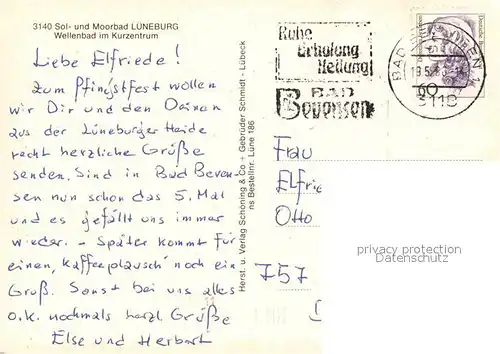 3140 Sol- und Moorbad LÜNEBURG
Wellenbad im Kurzentrum
Liebe Elfriede!
Zum Pfingstfest wollen
wir Dir und den Deinen
aus der Lüneburger Heide
recht herzliche Grüße
senden. Sind in Bad Beven-
sen nun schon das 5. Mal
und es gefällt uns immer
wieder. - Später kommt für
einen „Kaffeeplausch" noch ein
Gruß. Sonst bei uns alles
o.k. nochmals herzl. Grüße
Else und Herbert
Herst. u. Verlag Schöning & Co + Gebrüder Schmidt - Lübeck
Bestellnr. Lüne 186
Ruhe
Erholung
Heilung
BAD
Bevensen
BAD
1
3118
60
Frau
Elfrie
Otto
757
privacy protection
Datenschutz